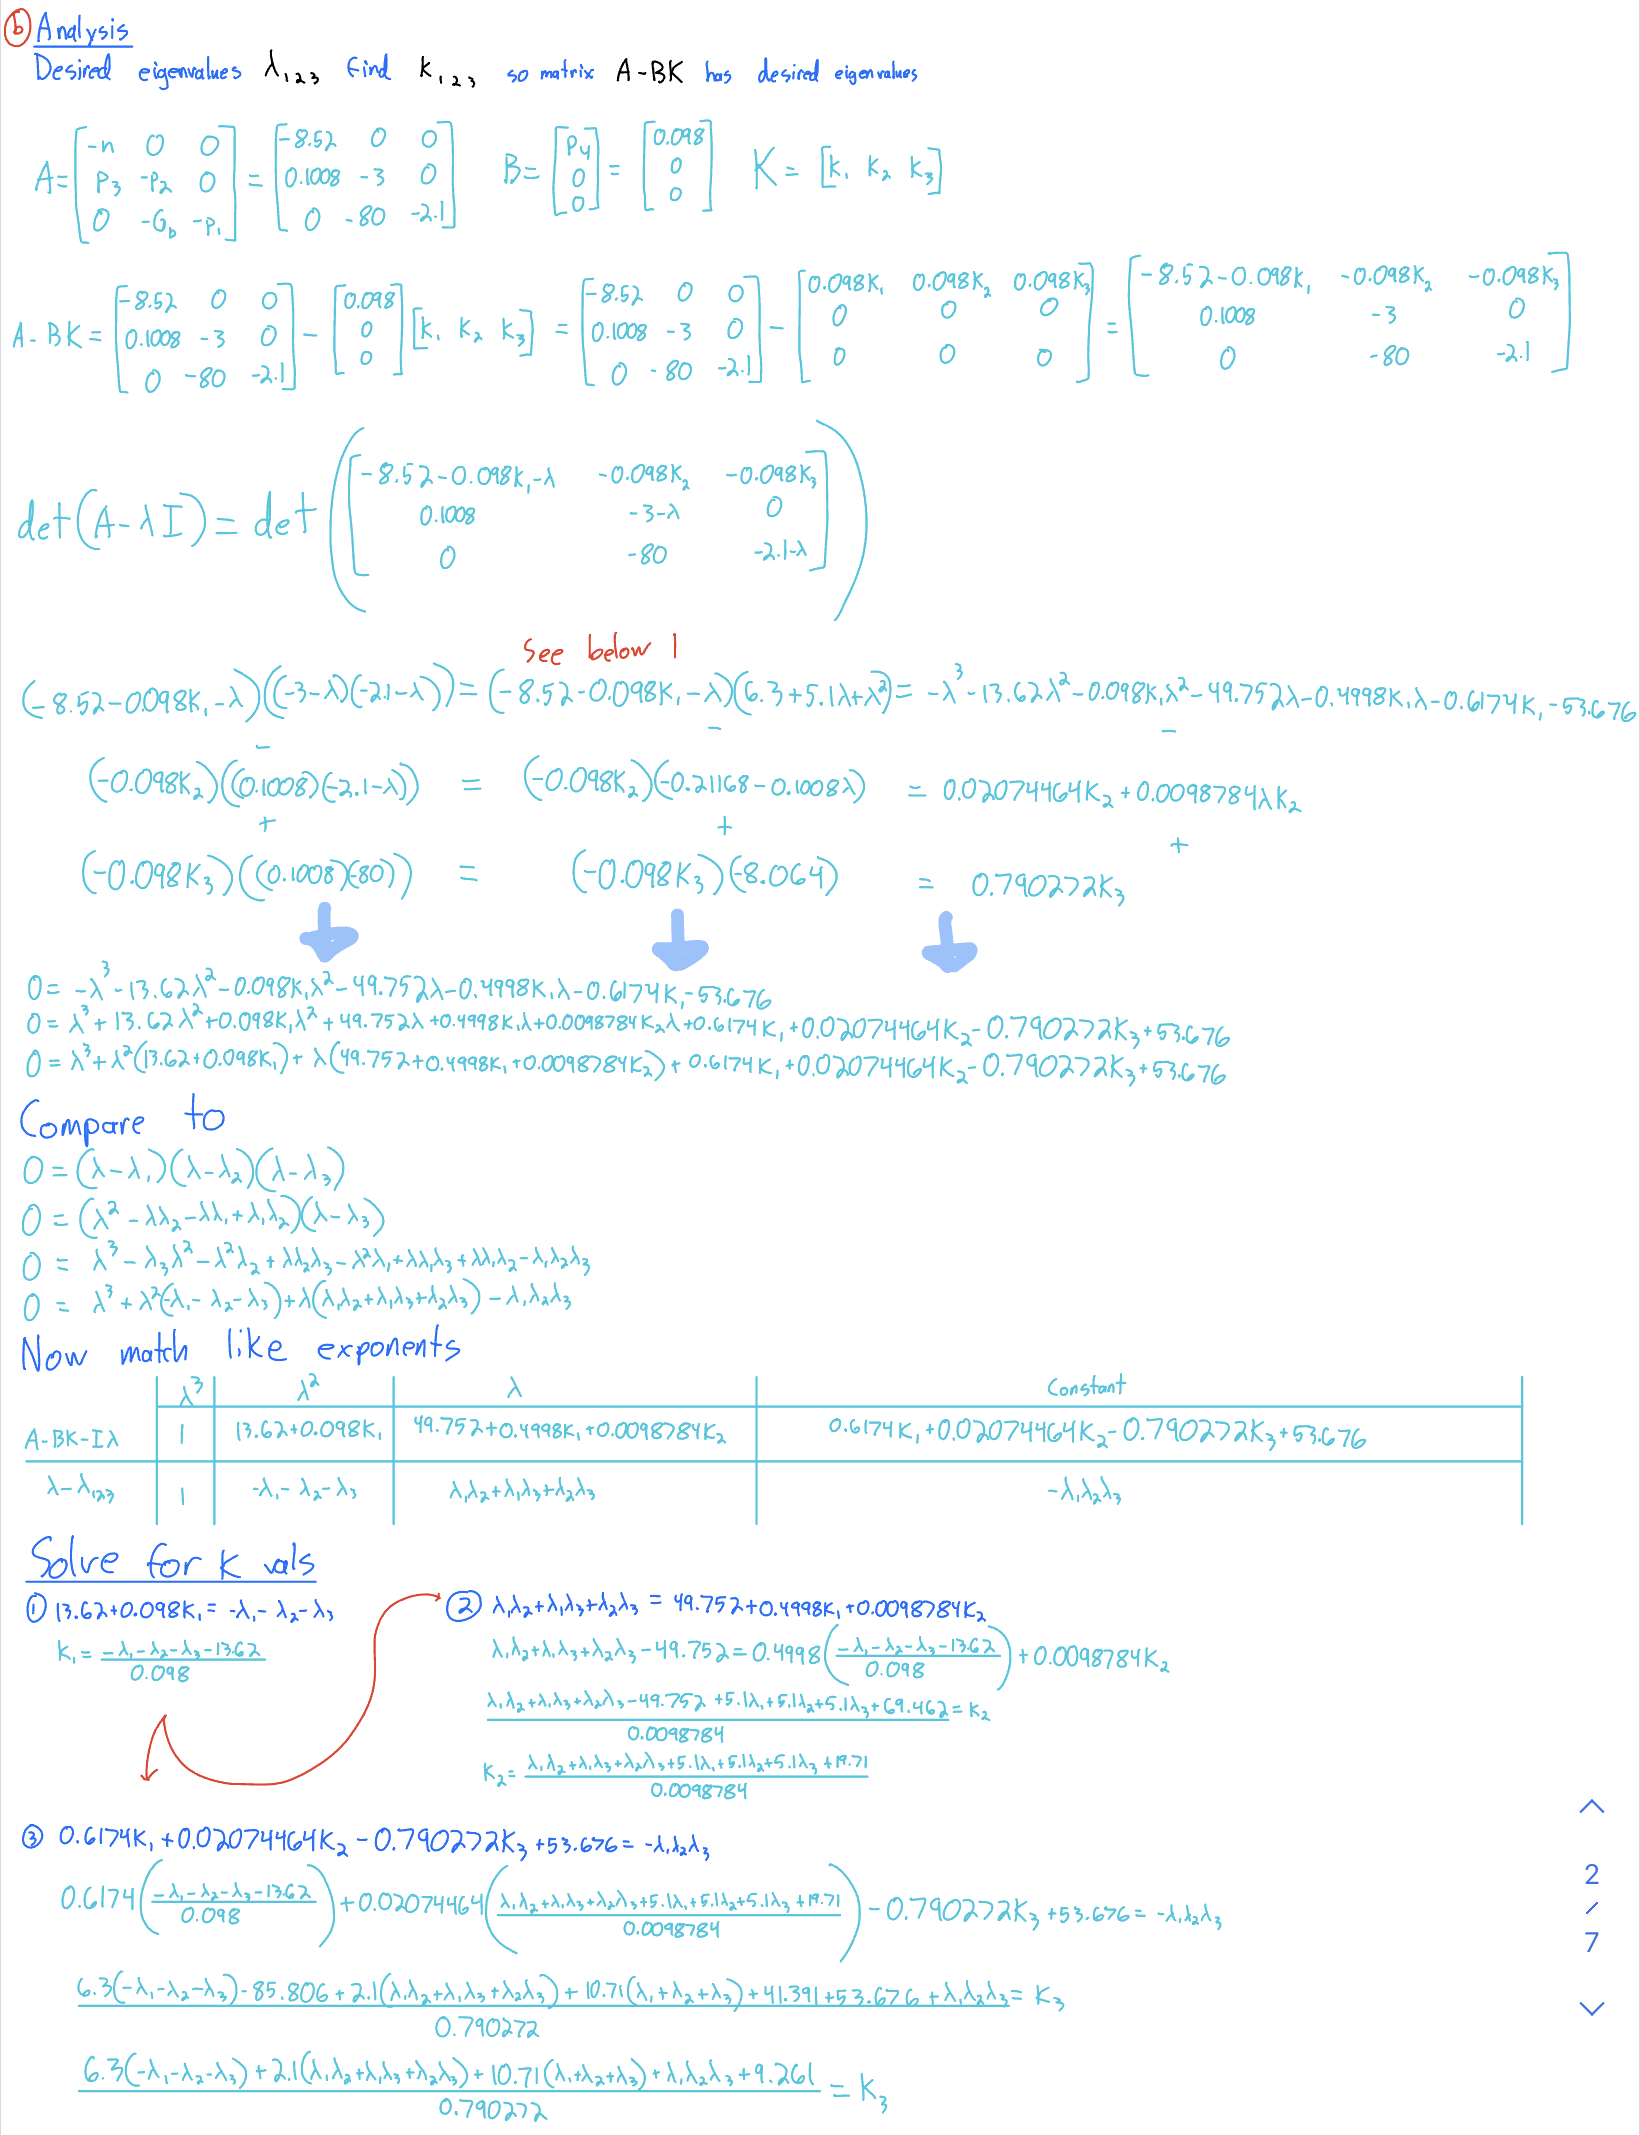 b Analysis
Desired eigenvalues λ₁₂₃ Find K₁₂₃ so matrix A-BK has desired eigenvalues
A=[-n 0 0; P₃ -P₂ 0; 0 -G_b -P₁] = [-8.52 0 0; 0.1008 -3 0; 0 -80 -2.1] B=[P₄; 0; 0] = [0.098; 0; 0] K= [k₁ k₂ k₃]
A-BK = [-8.52 0 0; 0.1008 -3 0; 0 -80 -2.1] - [0.098; 0; 0] [k₁ k₂ k₃] = [-8.52 0 0; 0.1008 -3 0; 0 -80 -2.1] - [0.098k₁ 0.098k₂ 0.098k₃; 0 0 0; 0 0 0] = [-8.52-0.098k₁ -0.098k₂ -0.098k₃; 0.1008 -3 0; 0 -80 -2.1]
det(A-λI) = det([-8.52-0.098k₁-λ -0.098k₂ -0.098k₃; 0.1008 -3-λ 0; 0 -80 -2.1-λ])
See below 1
(-8.52-0.098k₁-λ)((-3-λ)(-2.1-λ)) = (-8.52-0.098k₁-λ)(6.3+5.1λ+λ²) = -λ³-13.62λ²-0.098k₁λ²-49.752λ-0.4998k₁λ-0.6174k₁-53.676
- - -
(-0.098k₂)((0.1008)(-2.1-λ)) = (-0.098k₂)(-0.21168-0.1008λ) = 0.02074464k₂+0.0098784λk₂
+ + +
(-0.098k₃)((0.1008)(-80)) = (-0.098k₃)(-8.064) = 0.790272k₃
0= -λ³-13.62λ²-0.098k₁λ²-49.752λ-0.4998k₁λ-0.6174k₁-53.676
0= λ³+13.62λ²+0.098k₁λ²+49.752λ+0.4998k₁λ+0.0098784k₂λ+0.6174k₁+0.02074464k₂-0.790272k₃+53.676
0= λ³+λ²(13.62+0.098k₁)+λ(49.752+0.4998k₁+0.0098784k₂)+0.6174k₁+0.02074464k₂-0.790272k₃+53.676
Compare to
0=(λ-λ₁)(λ-λ₂)(λ-λ₃)
0=(λ²-λλ₂-λλ₁+λ₁λ₂)(λ-λ₃)
0= λ³-λ₃λ²-λ²λ₂+λλ₂λ₃-λ²λ₁+λλ₁λ₃+λλ₁λ₂-λ₁λ₂λ₃
0= λ³+λ²(-λ₁-λ₂-λ₃)+λ(λ₁λ₂+λ₁λ₃+λ₂λ₃)-λ₁λ₂λ₃
Now match like exponents
λ³ λ² λ Constant
A-BK-Iλ 1 13.62+0.098k₁ 49.752+0.4998k₁+0.0098784k₂ 0.6174k₁+0.02074464k₂-0.790272k₃+53.676
λ-λ₁₂₃ 1 -λ₁-λ₂-λ₃ λ₁λ₂+λ₁λ₃+λ₂λ₃ -λ₁λ₂λ₃
Solve for K vals
① 13.62+0.098k₁= -λ₁-λ₂-λ₃
k₁= (-λ₁-λ₂-λ₃-13.62)/0.098
② λ₁λ₂+λ₁λ₃+λ₂λ₃ = 49.752+0.4998k₁+0.0098784k₂
λ₁λ₂+λ₁λ₃+λ₂λ₃-49.752=0.4998((-λ₁-λ₂-λ₃-13.62)/0.098)+0.0098784k₂
(λ₁λ₂+λ₁λ₃+λ₂λ₃-49.752+5.1λ₁+5.1λ₂+5.1λ₃+69.462)/0.0098784=k₂
k₂= (λ₁λ₂+λ₁λ₃+λ₂λ₃+5.1λ₁+5.1λ₂+5.1λ₃+19.71)/0.0098784
③ 0.6174k₁+0.02074464k₂-0.790272k₃+53.676= -λ₁λ₂λ₃
0.6174((-λ₁-λ₂-λ₃-13.62)/0.098)+0.02074464((λ₁λ₂+λ₁λ₃+λ₂λ₃+5.1λ₁+5.1λ₂+5.1λ₃+19.71)/0.0098784)-0.790272k₃+53.676= -λ₁λ₂λ₃
(6.3(-λ₁-λ₂-λ₃)-85.806+2.1(λ₁λ₂+λ₁λ₃+λ₂λ₃)+10.71(λ₁+λ₂+λ₃)+41.391+53.676+λ₁λ₂λ₃)/0.790272= k₃
(6.3(-λ₁-λ₂-λ₃)+2.1(λ₁λ₂+λ₁λ₃+λ₂λ₃)+10.71(λ₁+λ₂+λ₃)+λ₁λ₂λ₃+9.261)/0.790272 = k₃
2
/
7